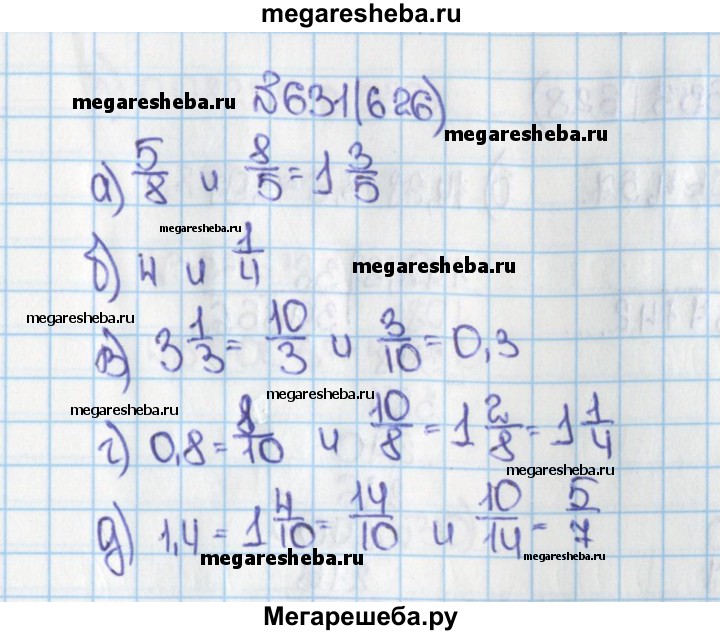 megaresheba.ru
megaresheba.ru №631(626)
megaresheba.ru
а) 5/8 и 8/5 = 1 3/5
megaresheba.ru
б) 4 и 1/4
megaresheba.ru
megaresheba.ru
в) 3 1/3 = 10/3 и 3/10 = 0,3
megaresheba.ru
megaresheba.ru
г) 0,8 = 8/10 и 10/8 = 1 2/8 = 1 1/4
megaresheba.ru
д) 1,4 = 1 4/10 = 14/10 и 10/14 = 5/7
megaresheba.ru
megaresheba.ru
Мегарешеба.ру